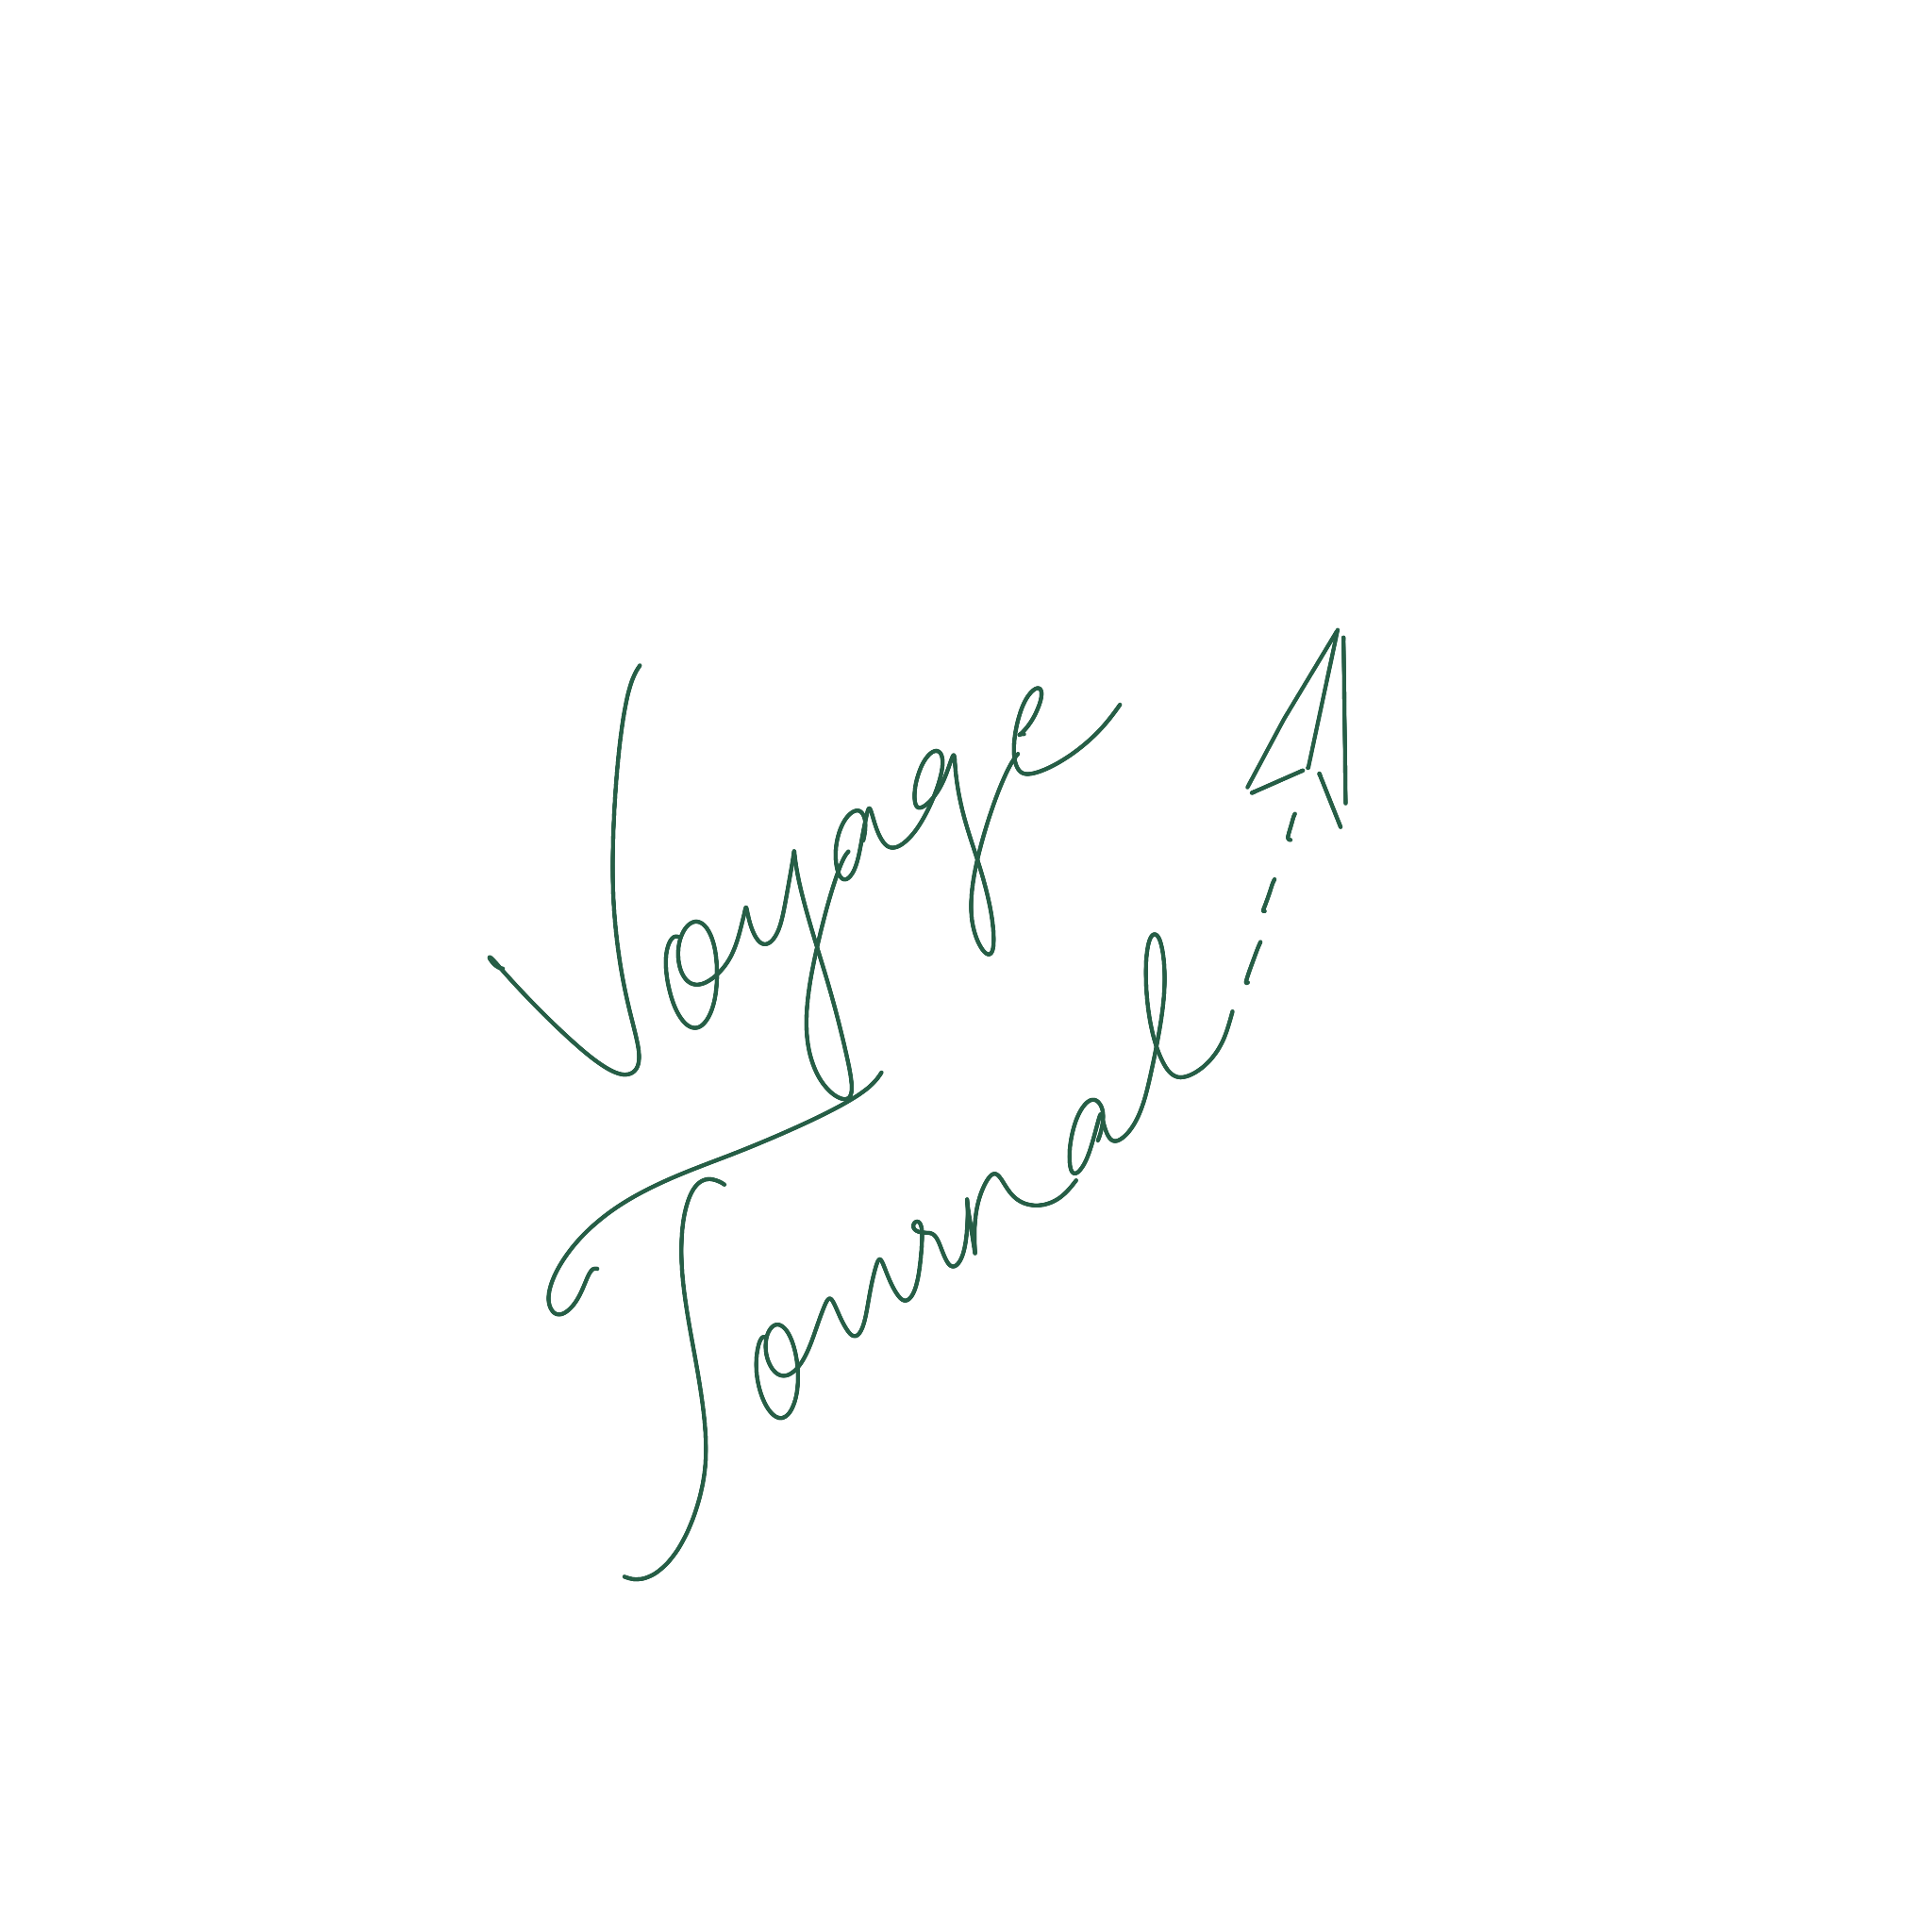 Voyage
Journal